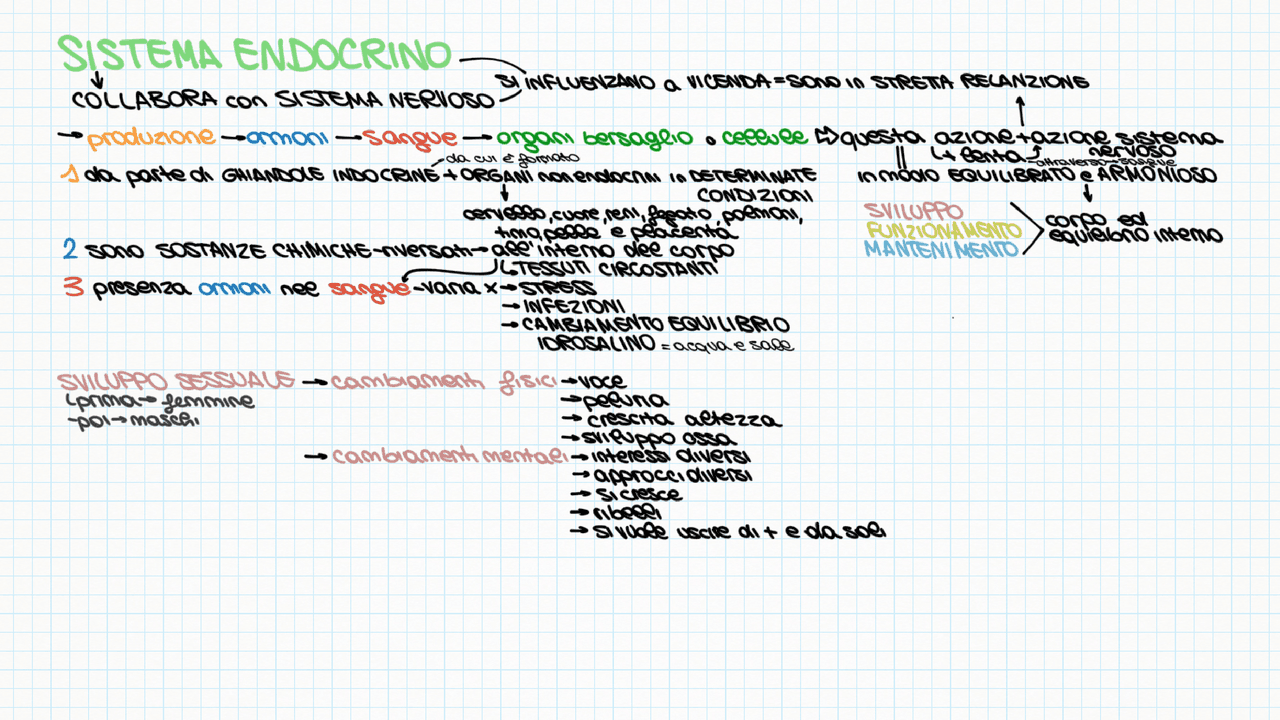 SISTEMA ENDOCRINO
SI INFLUENZANO a VICENDA = SONO in STRETTA RELANZIONE
COLLABORA con SISTEMA NERVOSO
→ produzione → ormoni → sangue → organi bersaglio o cellule ⇨ questa azione + azione sistema nervoso
↳ + lenta - attraverso sangue
da cui è formato
1 da parte di GHIANDOLE INDOCRINE + ORGANI non endocrini in DETERMINATE CONDIZIONI
in modo EQUILIBRATO e ARMONIOSO
cervello, cuore, reni, fegato, polmoni,
timo, pelle e placenta
SVILUPPO
FUNZIONAMENTO
MANTENIMENTO
corpo ed
equilibrio interno
2 sono SOSTANZE CHIMICHE → riversati → all'interno del corpo
↳ TESSUTI CIRCOSTANTI
3 presenza ormoni nel sangue → varia x → STRESS
→ INFEZIONI
→ CAMBIAMENTO EQUILIBRIO
IDROSALINO = acqua e sale
SVILUPPO SESSUALE → cambiamenti fisici → voce
↳ prima → femmine
→ peluria
- poi → maschi
→ crescita altezza
→ sviluppo ossa
→ cambiamenti mentali → interessi diversi
→ approcci diversi
→ si cresce
→ ribelli
→ si vuole uscire di + e da soli